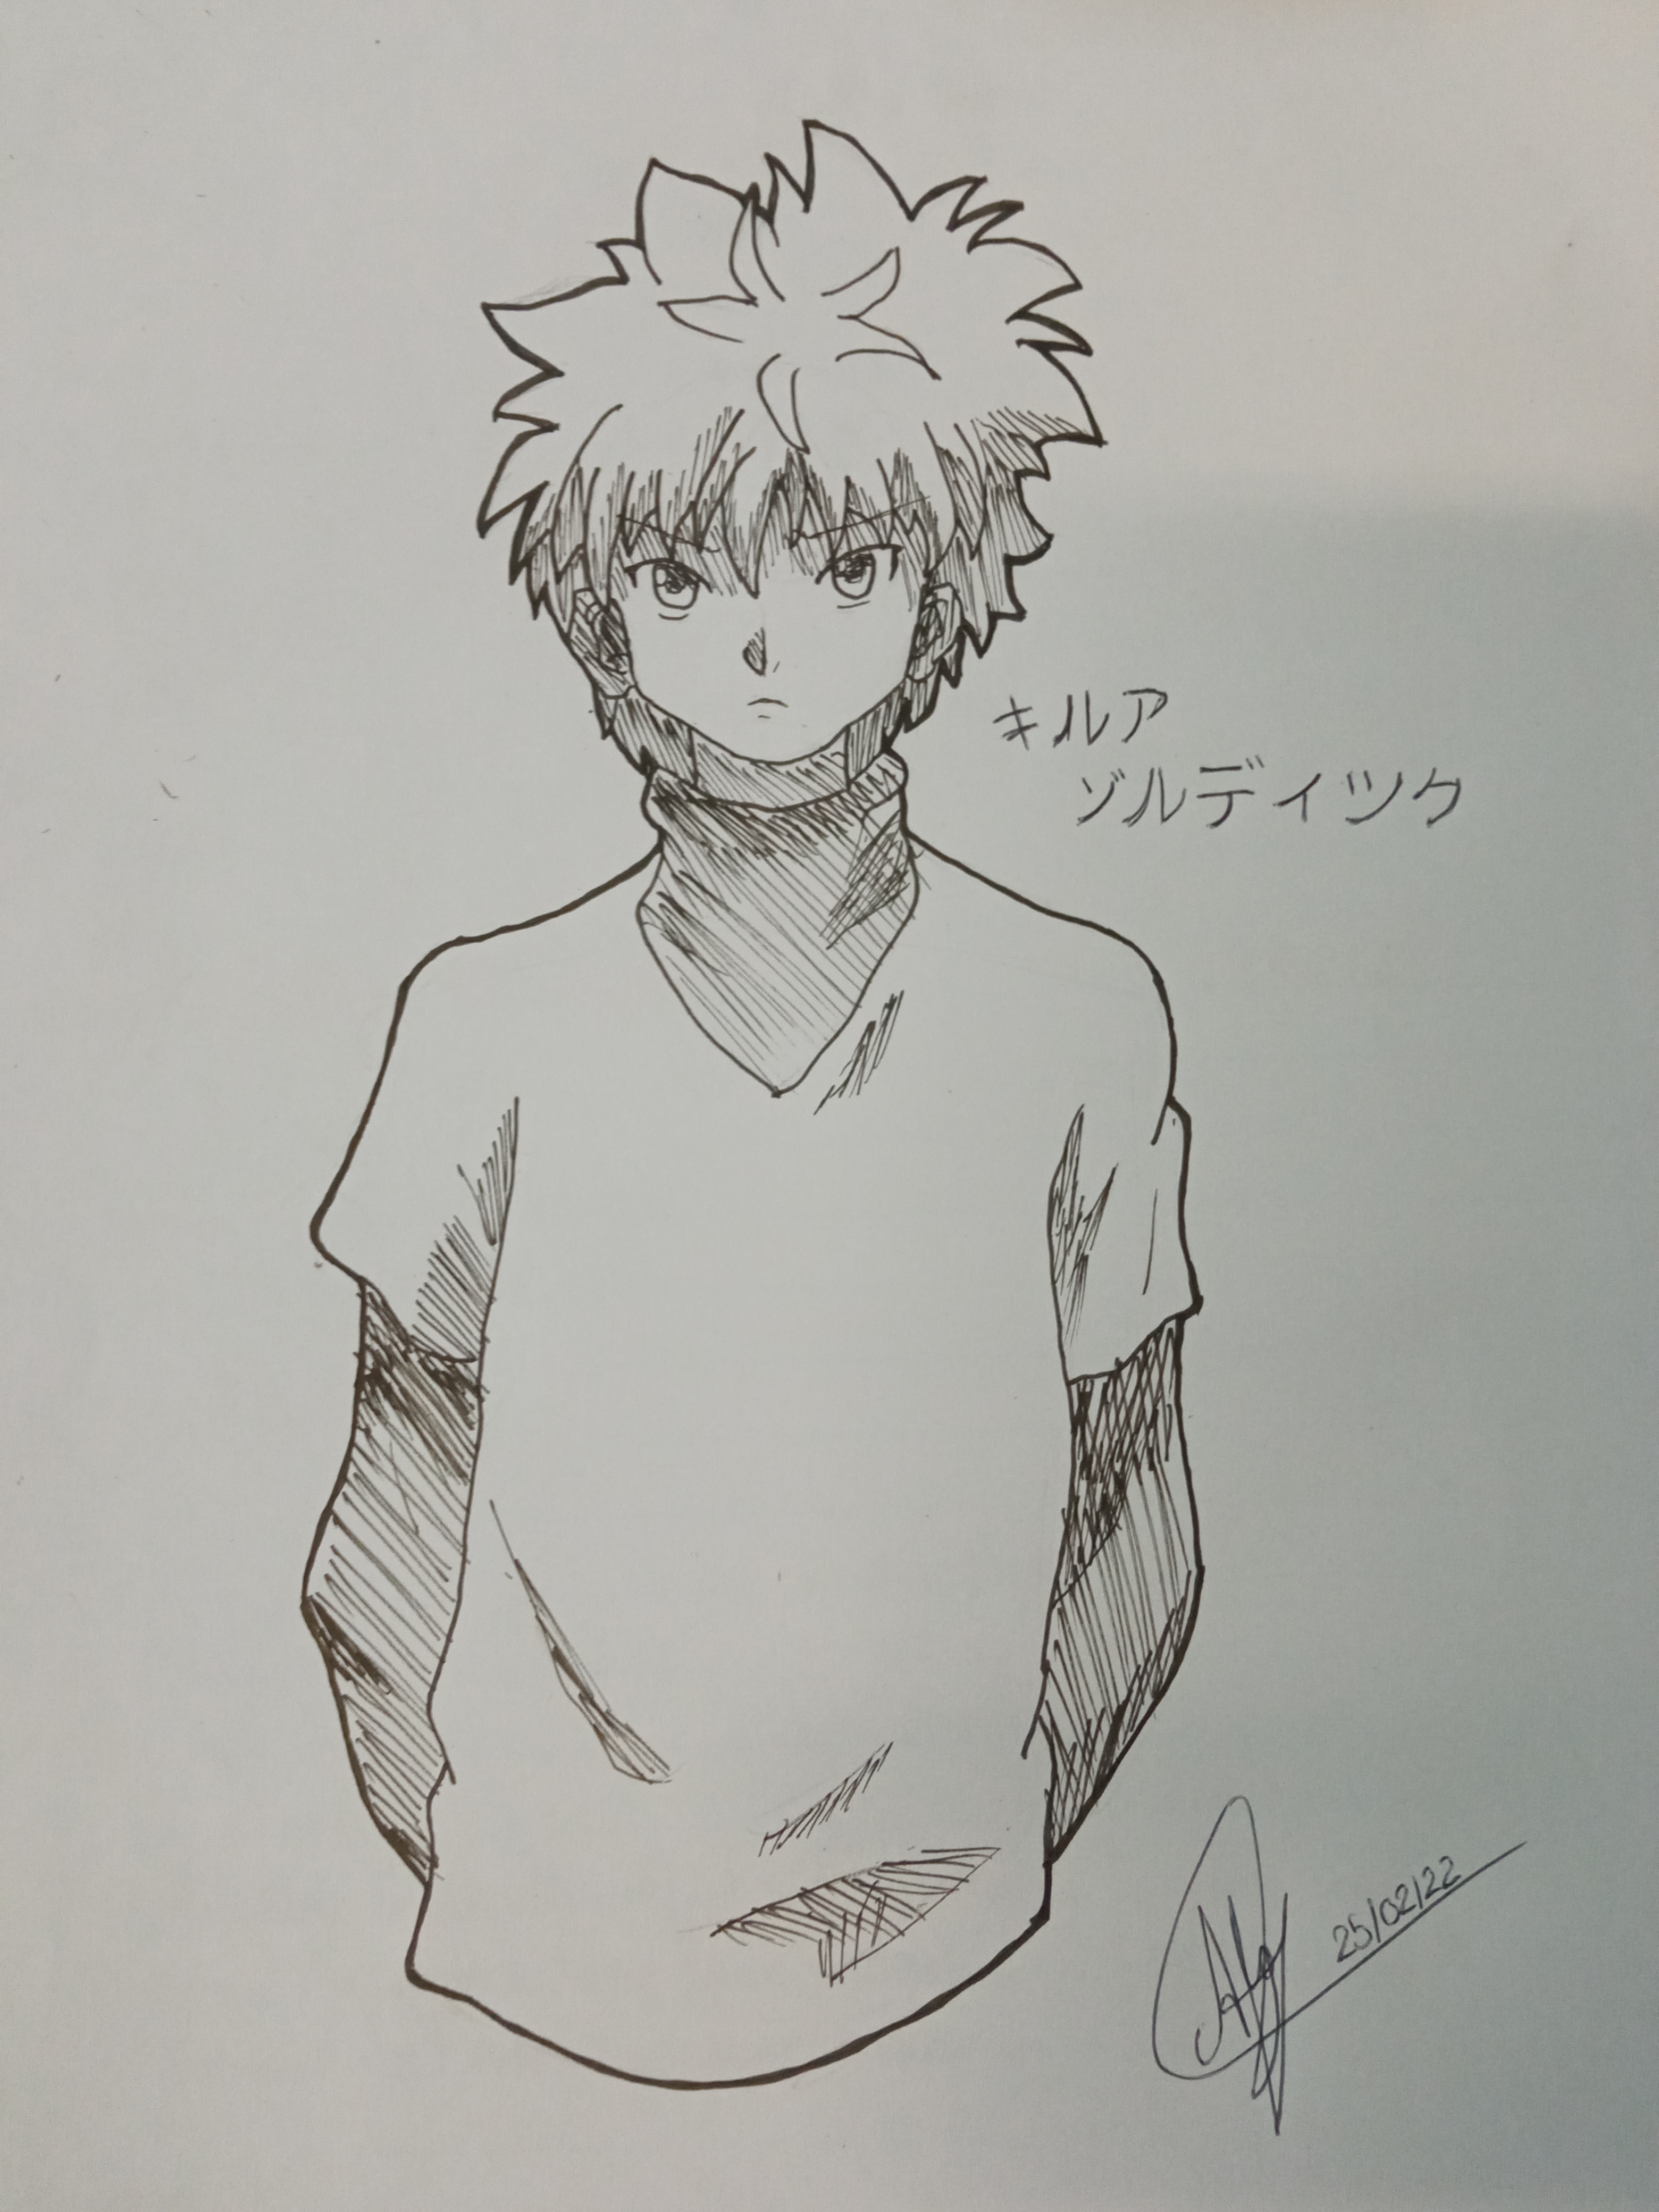 キルア
ゾルディック
25/02/22